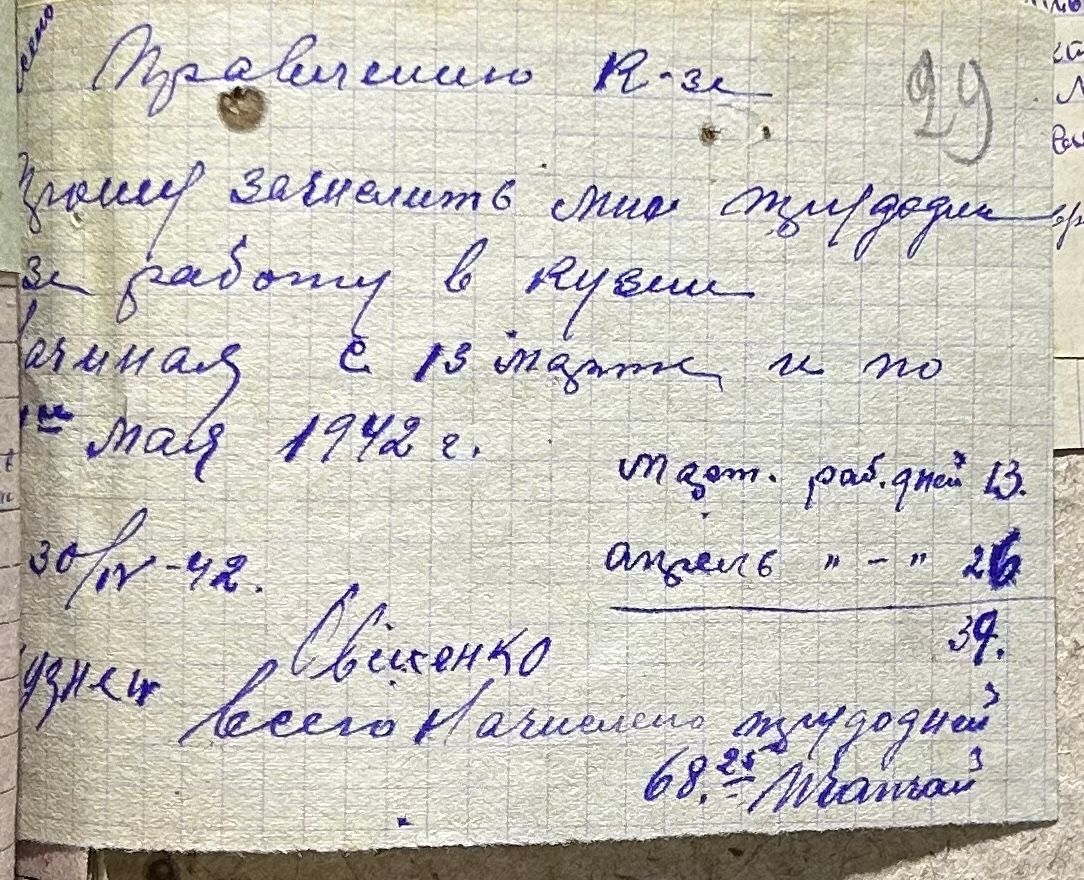 Правлению К-за
29
Прошу зачислить мне трудодни
за работу в кузни
начиная с 13 марта и по
1ое мая 1942 г.
март. раб. дней 13.
апрель " – " 26
39.
30/IV-42.
Кузнец
Всего начислено трудодней
68.25